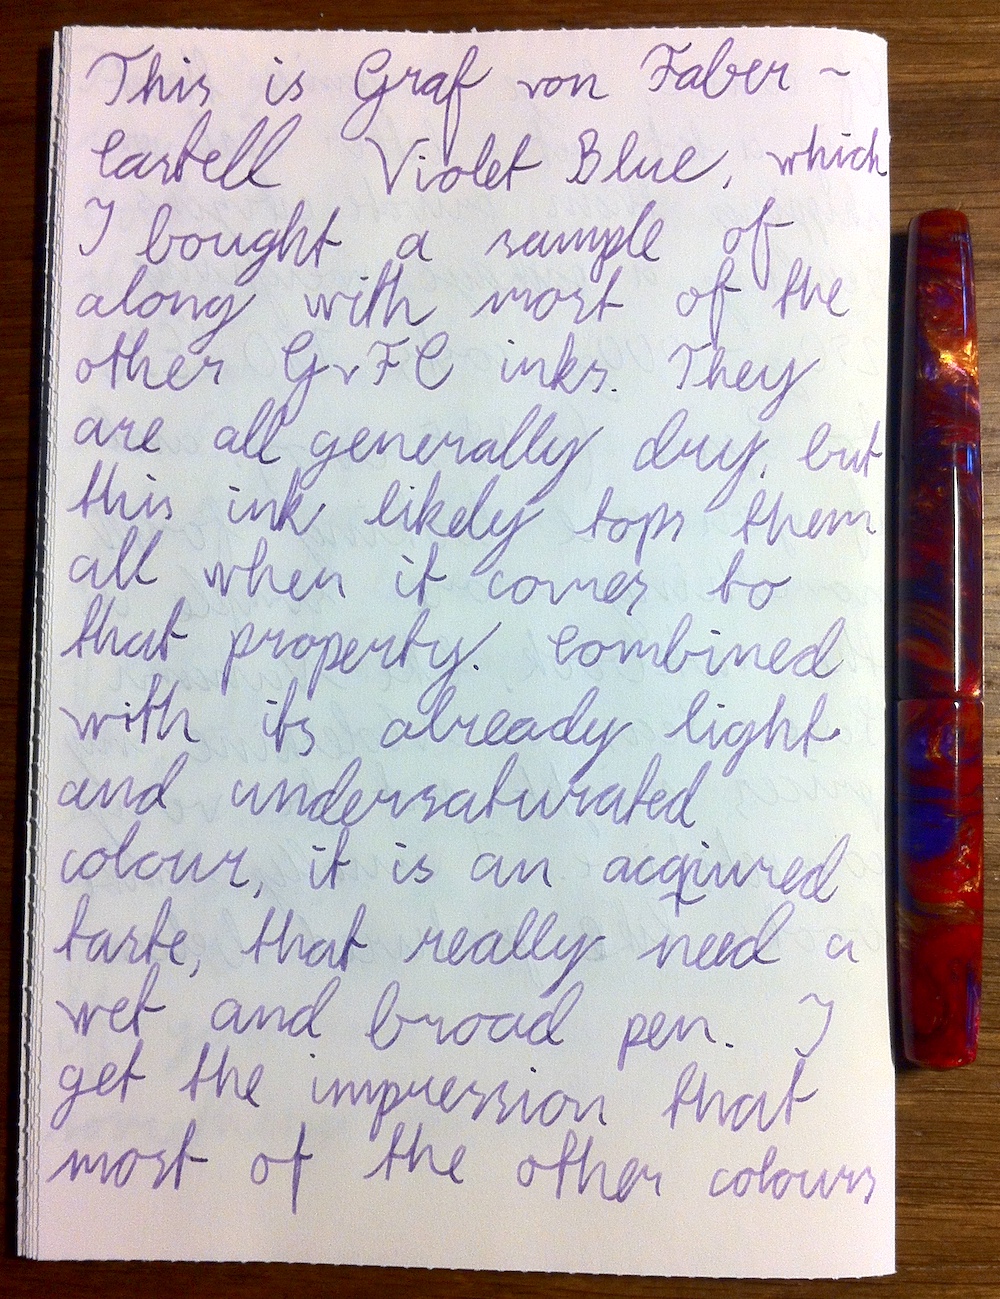 This is Graf von Faber-
Castell Violet Blue, which
I bought a sample of
along with most of the
other GvFC inks. They
are all generally dry, but
this ink likely tops them
all when it comes to
that property. Combined
with its already light
and undersaturated
colour, it is an acquired
taste, that really need a
wet and broad pen. I
get the impression that
most of the other colours